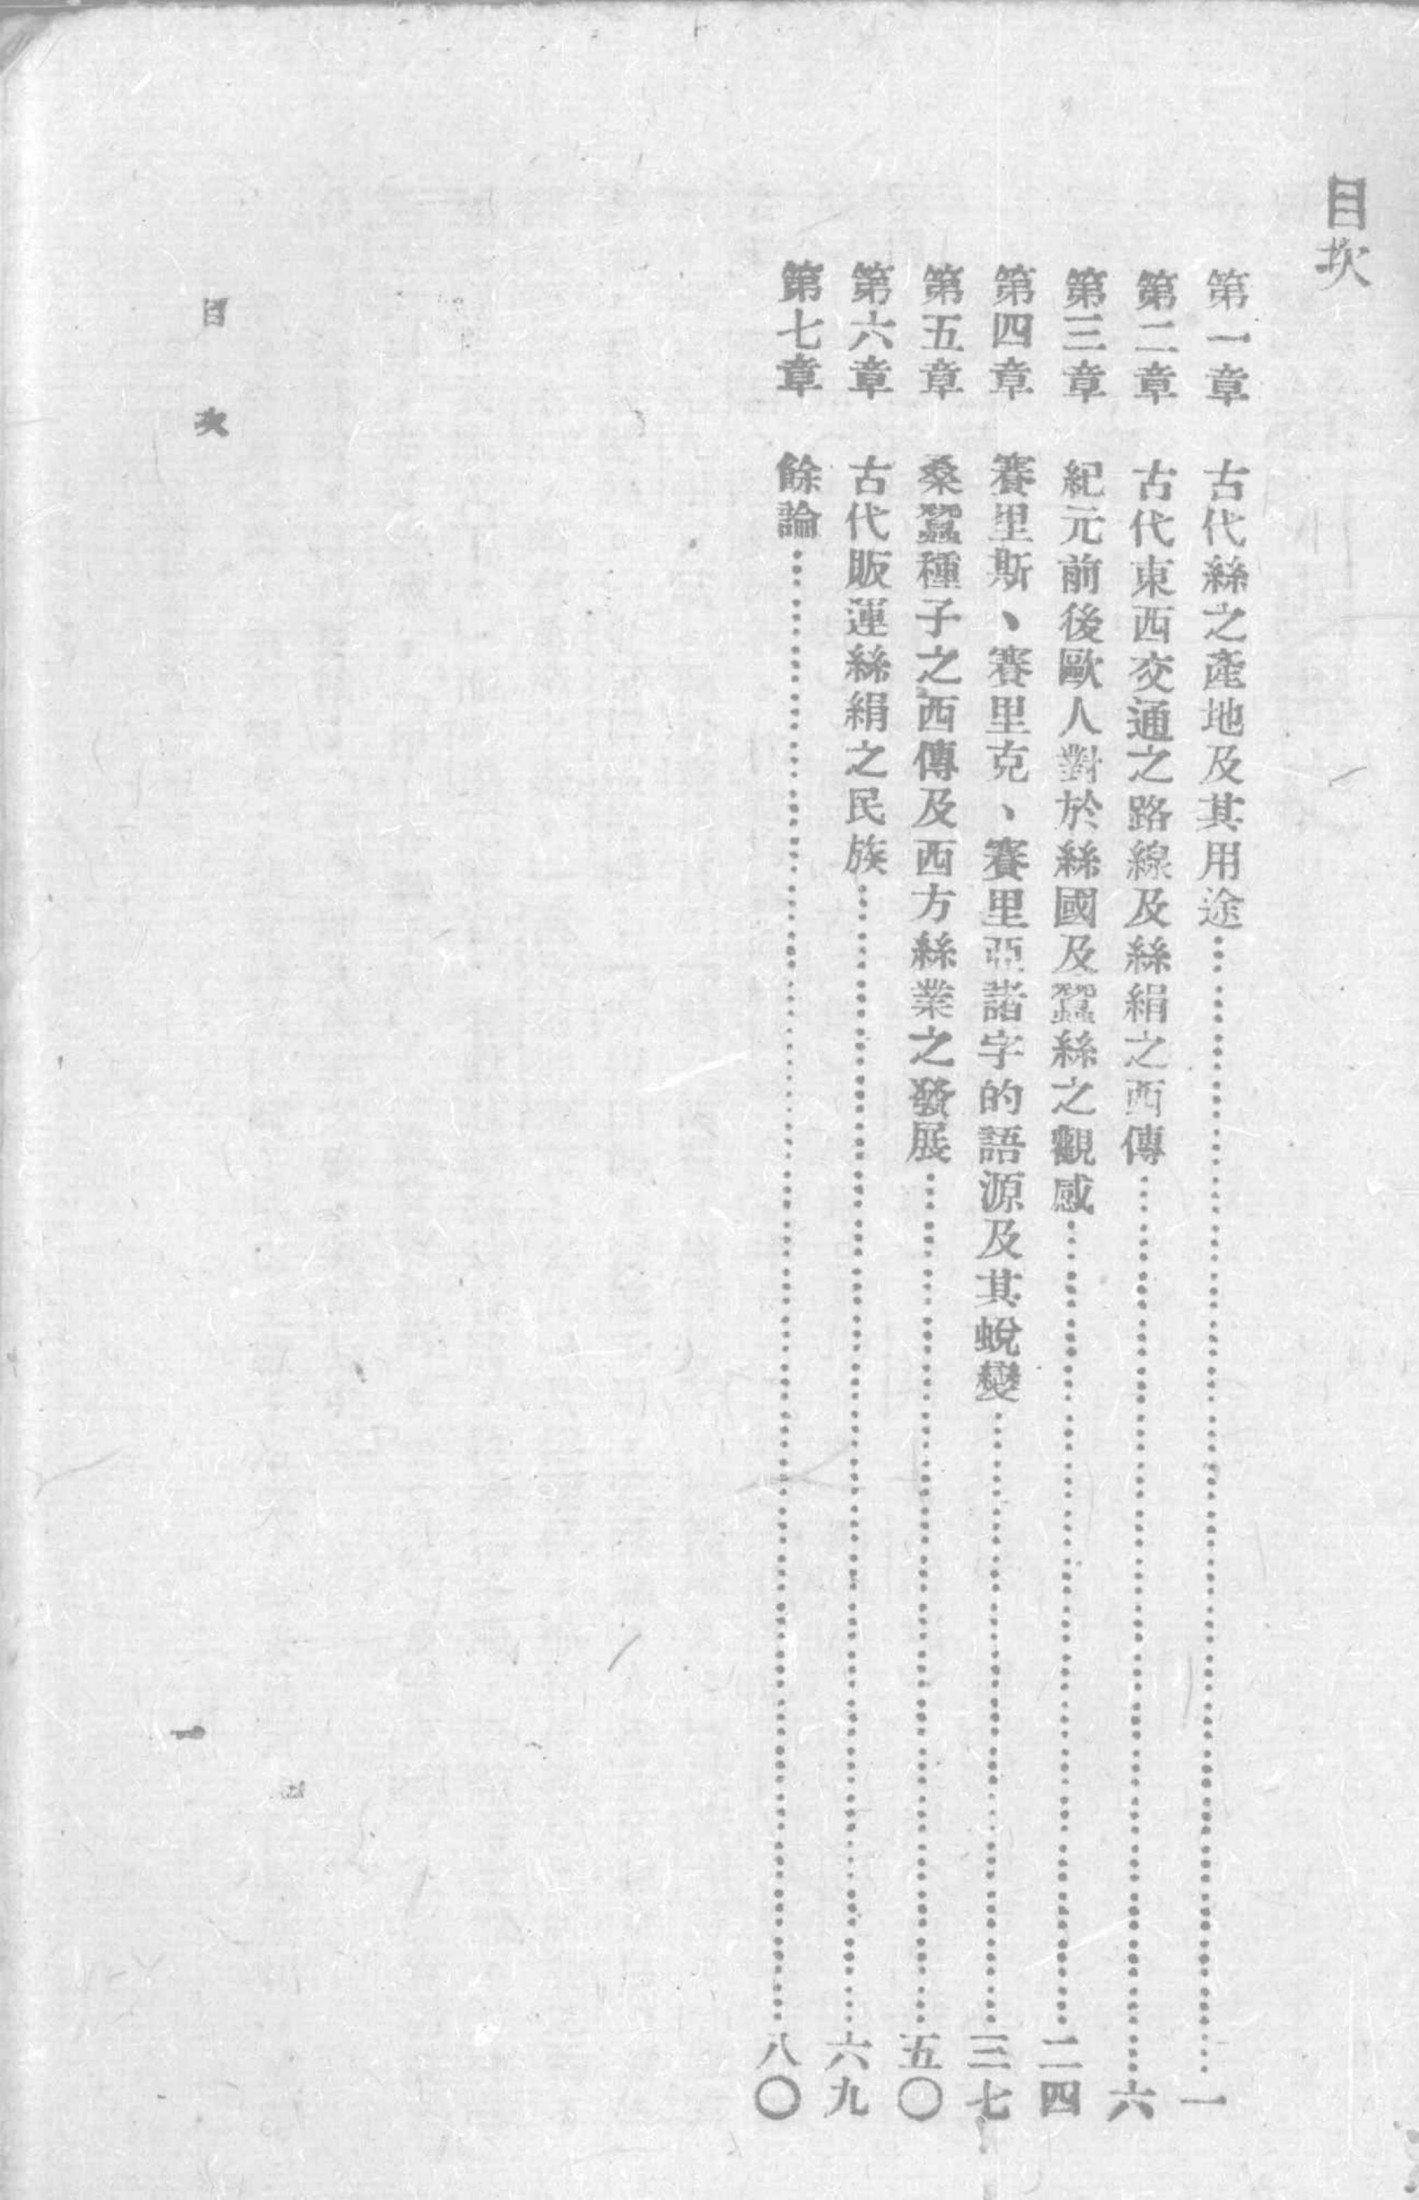 目次
第一章　古代絲之產地及其用途……一
第二章　古代東西交通之路線及絲絹之西傳……六
第三章　紀元前後歐人對於絲國及蠶絲之觀感……二四
第四章　賽里斯、賽里克、賽里亞諸字的語源及其蛻變……三七
第五章　桑蠶種子之西傳及西方絲業之發展……五〇
第六章　古代販運絲絹之民族……六九
第七章　餘論……八〇
目次
一